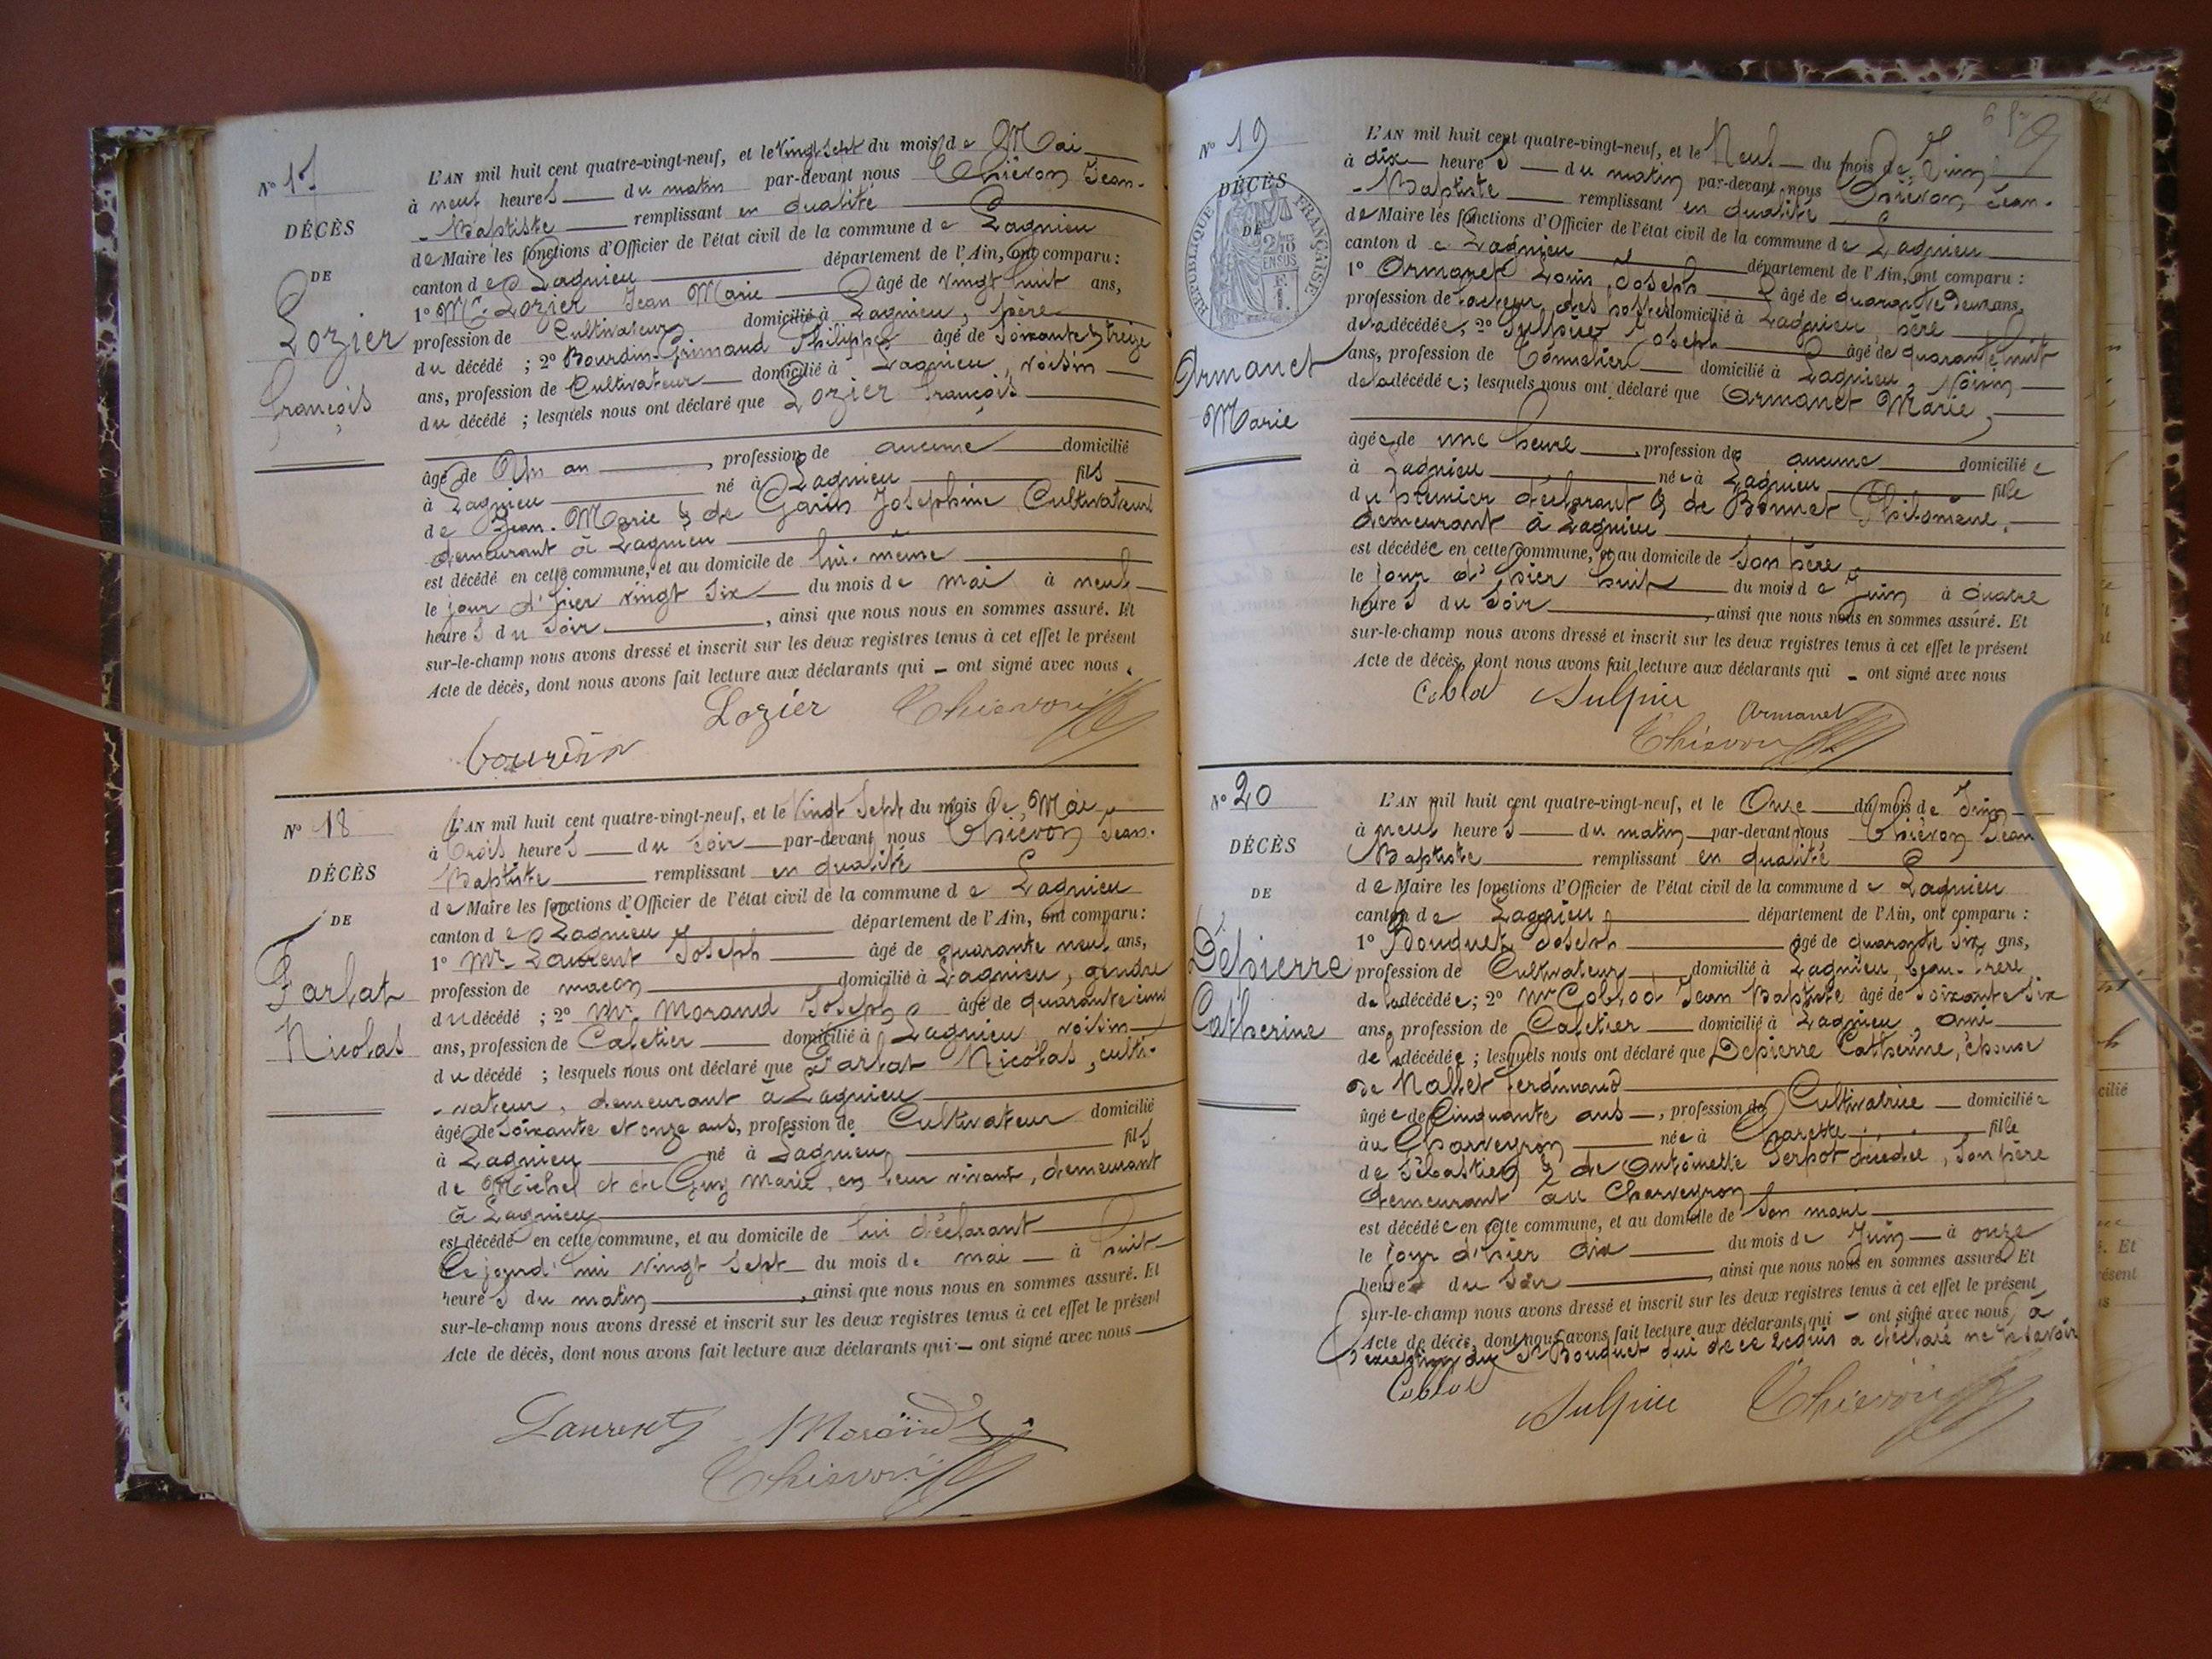 N° 17
DÉCÈS
DE
Lozier
François
L'AN mil huit cent quatre-vingt-neuf, et le vingt sept du mois de Mai
à neuf heures du matin par-devant nous Chiévron Jean-
-Baptiste remplissant en qualité
de Maire les fonctions d'Officier de l'état civil de la commune de Lagnieu
canton de Lagnieu département de l'Ain, ont comparu :
1° Mr. Lozier Jean Marie âgé de vingt huit ans,
profession de Cultivateur domicilié à Lagnieu, père
du décédé ; 2° Bourdin-Grimaud Philippe âgé de Soixante & treize
ans, profession de Cultivateur domicilié à Lagnieu, voisin
du décédé ; lesquels nous ont déclaré que Lozier François
âgé de Un an , profession de aucune domicilié
à Lagnieu né à Lagnieu fils
de Jean-Marie & de Garin Josephine Cultivateurs
demeurant à Lagnieu
est décédé en cette commune, et au domicile de lui-même
le jour d'hier vingt six du mois de mai à neuf
heures du Soir , ainsi que nous nous en sommes assuré. Et
sur-le-champ nous avons dressé et inscrit sur les deux registres tenus à cet effet le présent
Acte de décès, dont nous avons fait lecture aux déclarants qui - ont signé avec nous.
Lozier Chiévron
bourdin
N° 18
DÉCÈS
DE
Farlat
Nicolas
L'AN mil huit cent quatre-vingt-neuf, et le Vingt Sept du mois de Mai
à trois heures du Soir par-devant nous Chiévron Jean-
Baptiste remplissant en qualité
de Maire les fonctions d'Officier de l'état civil de la commune de Lagnieu
canton de Lagnieu département de l'Ain, ont comparu :
1° Mr. Laurent Joseph âgé de quarante neuf ans,
profession de maçon domicilié à Lagnieu, gendre
du décédé ; 2° Mr. Morand Joseph âgé de quarante cinq
ans, profession de Cafetier domicilié à Lagnieu, voisin
du décédé ; lesquels nous ont déclaré que Farlat Nicolas, culti-
-vateur, demeurant à Lagnieu
âgé de Soixante et onze ans, profession de Cultivateur domicilié
à Lagnieu né à Lagnieu fils
de Michel et de Guy Marie, en leur vivant, demeurant
à Lagnieu
est décédé en cette commune, et au domicile de lui déclarant
Ce jourd'hui vingt Sept du mois de mai à huit
heures du matin , ainsi que nous nous en sommes assuré. Et
sur-le-champ nous avons dressé et inscrit sur les deux registres tenus à cet effet le présent
Acte de décès, dont nous avons fait lecture aux déclarants qui - ont signé avec nous
Laurent Morand
Chiévron
N° 19
DÉCÈS
DE
RÉPUBLIQUE FRANÇAISE
Armanet
Marie
L'AN mil huit cent quatre-vingt-neuf, et le Neuf du mois de Juin
à dix heures du matin par-devant nous Chiévron Jean-
-Baptiste remplissant en qualité
de Maire les fonctions d'Officier de l'état civil de la commune de Lagnieu
canton de Lagnieu département de l'Ain, ont comparu :
1° Armanet Louis Joseph âgé de quarante deux ans,
profession de facteur des postes domicilié à Lagnieu, père
de la décédée ; 2° Sulpice Joseph âgé de quarante huit
ans, profession de Tonnelier domicilié à Lagnieu, Voisin
de la décédée ; lesquels nous ont déclaré que Armanet Marie,
âgée de une heure , profession de aucune domiciliée
à Lagnieu née à Lagnieu fille
du premier déclarant & de Bonnet Philomène,
demeurant à Lagnieu
est décédée en cette commune, et au domicile de Son père
le jour d'hier huit du mois de Juin à quatre
heures du Soir , ainsi que nous nous en sommes assuré. Et
sur-le-champ nous avons dressé et inscrit sur les deux registres tenus à cet effet le présent
Acte de décès, dont nous avons fait lecture aux déclarants qui - ont signé avec nous
Coblod Sulpice Armanet
Chiévron
N° 20
DÉCÈS
DE
Dépierre
Catherine
L'AN mil huit cent quatre-vingt-neuf, et le Onze du mois de Juin
à neuf heures du matin par-devant nous Chiévron Jean
Baptiste remplissant en qualité
de Maire les fonctions d'Officier de l'état civil de la commune de Lagnieu
canton de Lagnieu département de l'Ain, ont comparu :
1° Bouquet Joseph âgé de quarante Six ans,
profession de Cultivateur domicilié à Lagnieu, beau-frère
de la décédée ; 2° Mr Coblod Jean Baptiste âgé de Soixante Six
ans, profession de Cafetier domicilié à Lagnieu, ami
de la décédée ; lesquels nous ont déclaré que Dépierre Catherine, épouse
de Nallet ferdinand
âgée de Cinquante ans , profession de Cultivatrice domiciliée
au Charveyron née à Charette fille
de Sébastien & de Antoinette Serpot décédée, Son père
demeurant au Charveyron
est décédée en cette commune, et au domicile de Son mari
le jour d'hier dix du mois de Juin à onze
heures du Soir , ainsi que nous nous en sommes assuré. Et
sur-le-champ nous avons dressé et inscrit sur les deux registres tenus à cet effet le présent
Acte de décès, dont nous avons fait lecture aux déclarants qui - ont signé avec nous, à
l'exception du Sr Bouquet qui de ce requis a déclaré ne le savoir
Coblod Sulpice Chiévron